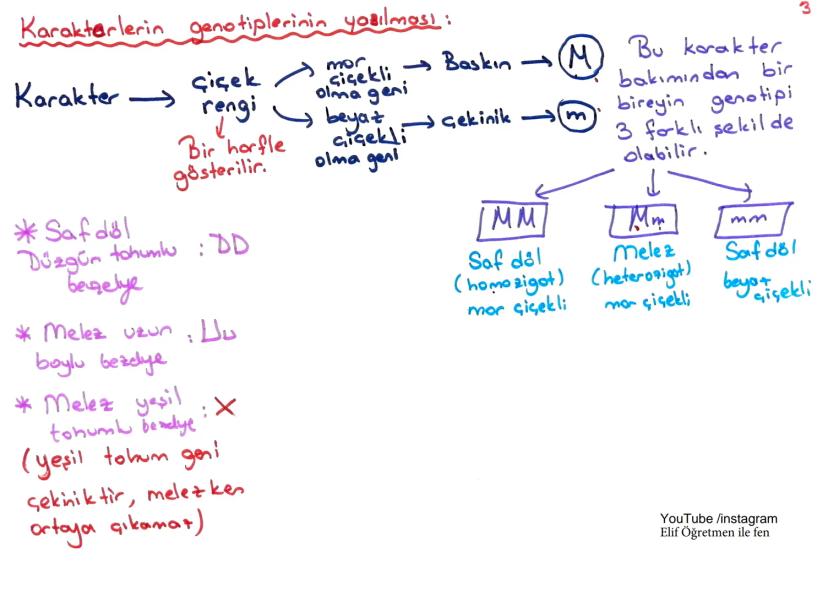 3
Karakterlerin genotiplerinin yazılması :
Karakter → çiçek rengi
Bir harfle
gösterilir.
mor
çiçekli
olma geni → Baskın → M
beyaz
çiçekli
olma geni → çekinik → m
Bu karakter
bakımından bir
bireyin genotipi
3 farklı şekilde
olabilir.
MM
Saf döl
(homozigot)
mor çiçekli
Mm
Melez
(heterozigot)
mor çiçekli
mm
Saf döl
beyaz
çiçekli
* Saf döl
Düzgün tohumlu : DD
bezelye
* Melez uzun : Uu
boylu bezelye
* Melez yeşil
tohumlu bezelye : X
(yeşil tohum geni
çekiniktir, melezken
ortaya çıkamaz)
YouTube /instagram
Elif Öğretmen ile fen